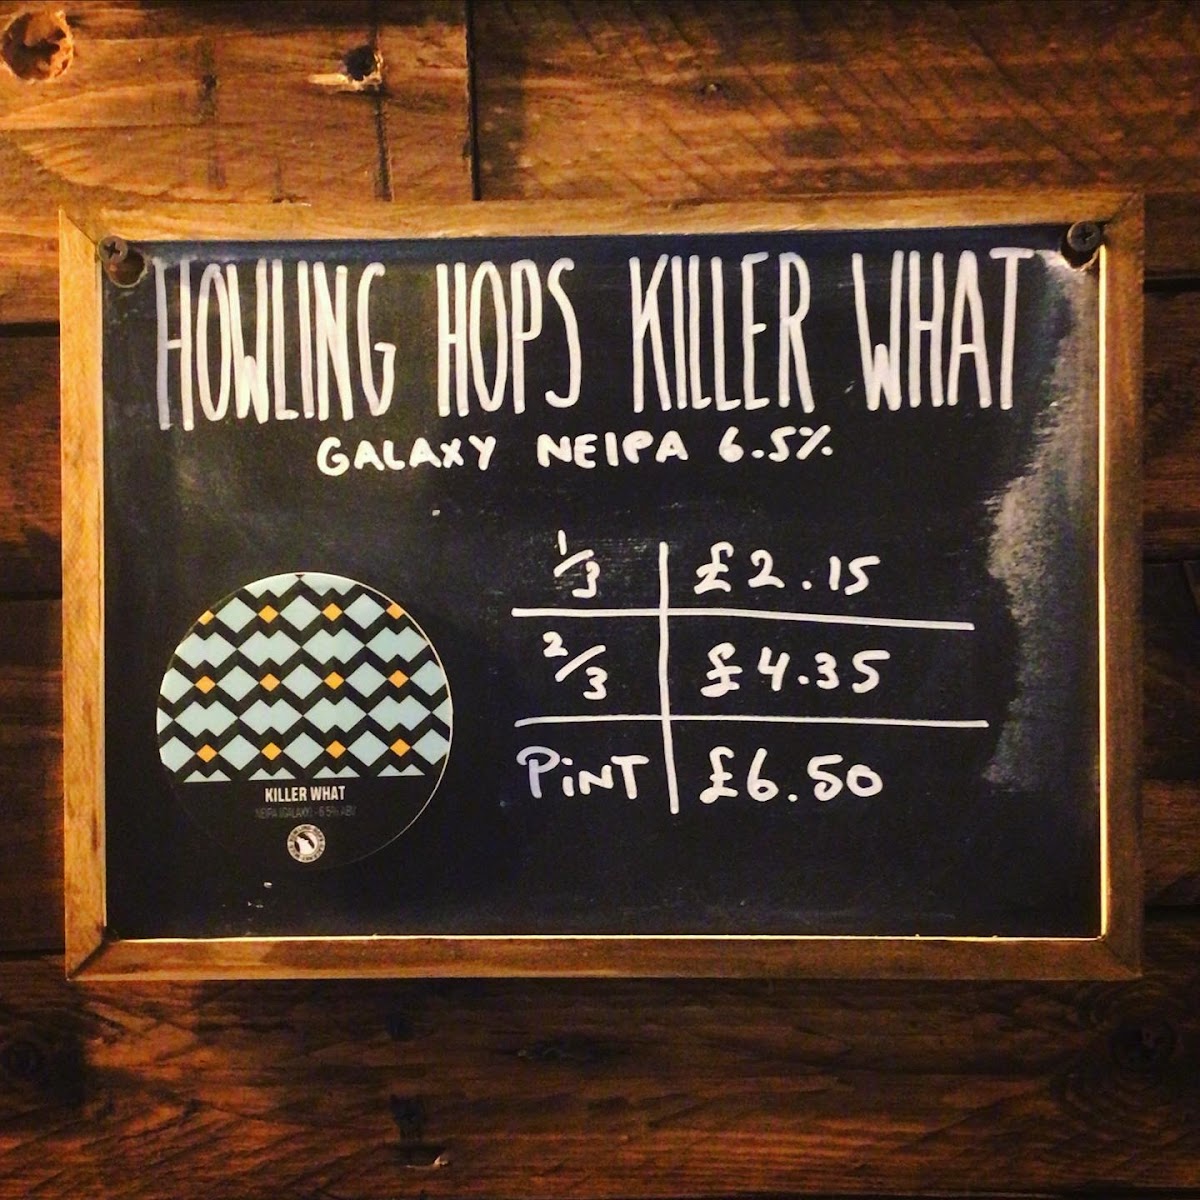 HOWLING HOPS KILLER WHAT
GALAXY NEIPA 6.5%
1/3 £2.15
2/3 £4.35
PiNT £6.50
KILLER WHAT
NEIPA (GALAXY) - 6.5% ABV